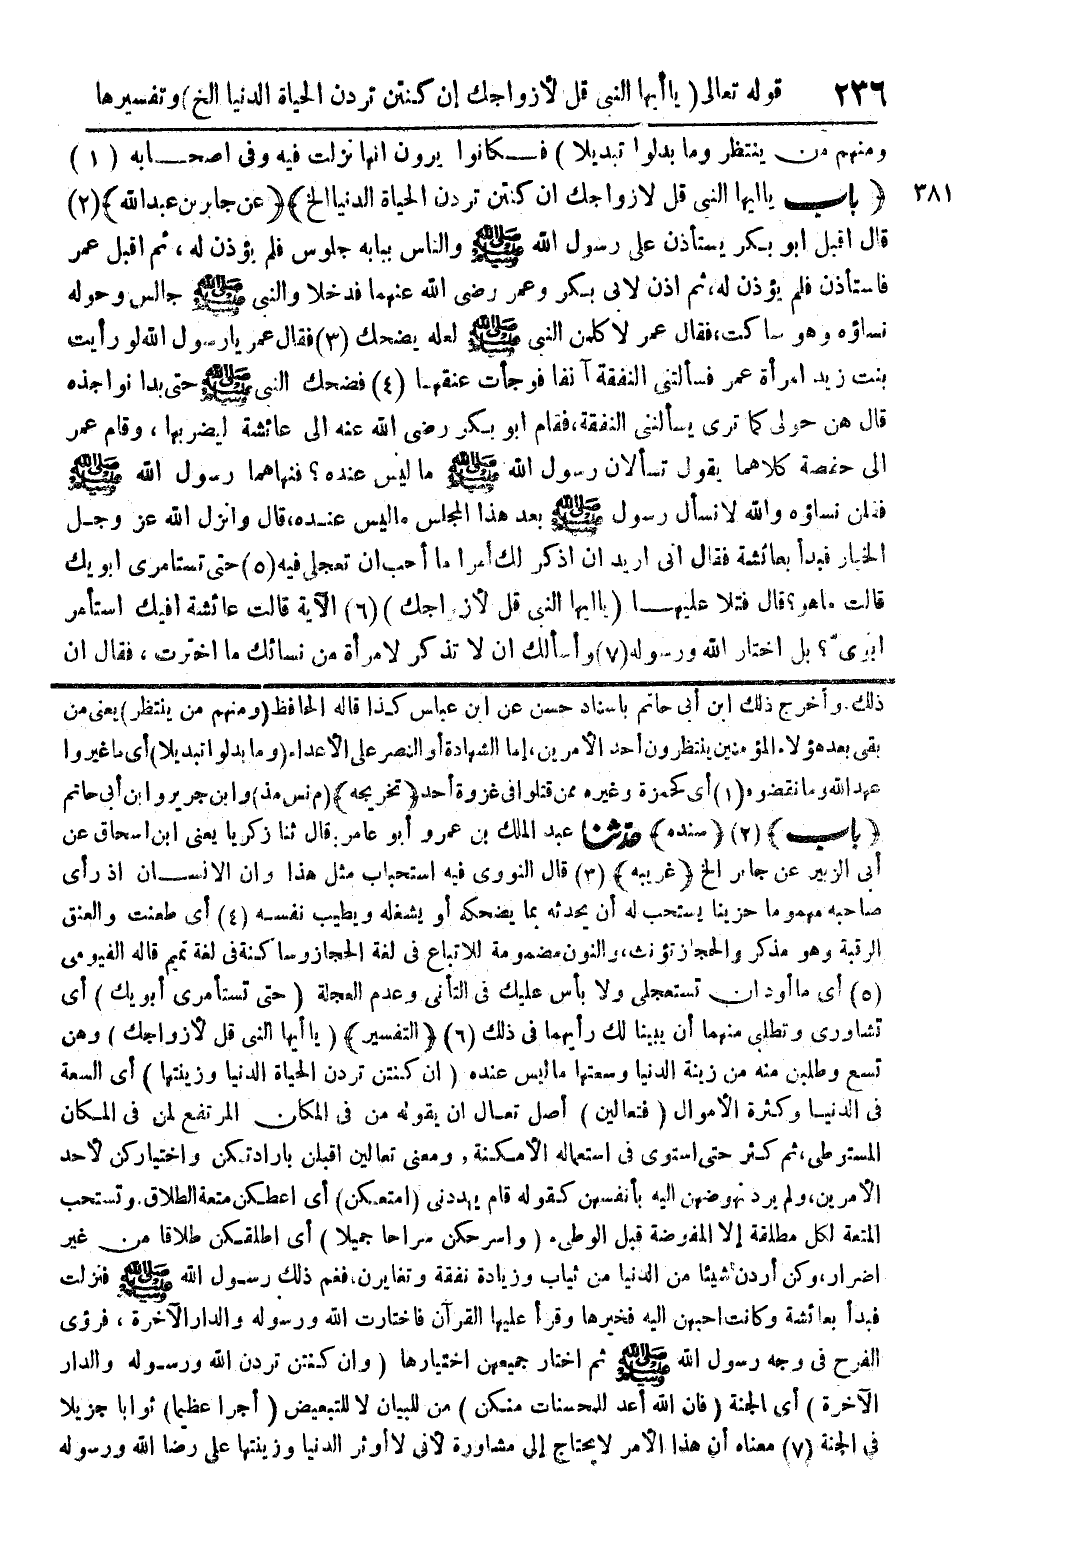 ٢٣٦ قوله تعالى ( ياأيها النبى قل لأزواجك إن كنتن تردن الحياة الدنيا الخ ) وتفسيرها
ومنهم من ينتظر وما بدلوا تبديلا ) فكانوا يرون انها نزلت فيه وفى اصحابه (١)
٣٨١ ﴿ باب ياايها النبى قل لازواجك ان كنتن تردن الحياة الدنيا الخ ﴾ ﴿ عن جابر بن عبدالله ﴾ (٢)
قال اقبل ابو بكر يستأذن على رسول الله ﷺ والناس ببابه جلوس فلم يؤذن له ، ثم اقبل عمر
فاستأذن فلم يؤذن له، ثم اذن لابى بكر وعمر رضى الله عنهما فدخلا والنبى ﷺ جالس وحوله
نساؤه وهو ساكت، فقال عمر لاكلمن النبى ﷺ لعله يضحك (٣) فقال عمر يارسول الله لو رأيت
بنت زيد امرأة عمر فسألتنى النفقة آنفا فوجأت عنقها (٤) فضحك النبى ﷺ حتى بدا نواجذه
قال هن حولى كما ترى يسألننى النفقة، فقام ابو بكر رضى الله عنه الى عائشة ليضربها ، وقام عمر
الى حفصة كلاهما يقول تسألان رسول الله ﷺ ما ليس عنده ؟ فنهاهما رسول الله ﷺ
فقلن نساؤه والله لانسأل رسول ﷺ بعد هذا المجلس ماليس عنده، قال وانزل الله عز وجل
الخيار فبدأ بعائشة فقال انى اريد ان اذكر لك أمرا ما أحب ان تعجلى فيه (٥) حتى تستامرى ابويك
قالت ماهو؟ قال فتلا عليها ( ياايها النبى قل لأزواجك ) (٦) الآية قالت عائشة افيك استأمر
ابوىّ ؟ بل اختار الله ورسوله (٧) وأسألك ان لا تذكر لامرأة من نسائك ما اخترت ، فقال ان
ذلك. وأخرج ذلك ابن أبى حاتم باسناد حسن عن ابن عباس كذا قاله الحافظ (ومنهم من ينتظر) يعنى من
بقى بعد هؤلاء المؤمنين ينتظرون أحد الأمرين، إما الشهادة أو النصر على الأعداء (وما بدلوا تبديلا) أى ماغيروا
عهد الله وما نقضوه (١) أى كحمزة وغيره ممن قتلوا فى غزوة أحد ﴿ تخريجه ﴾ (م نس مذ) وابن جرير وابن أبى حاتم
﴿ باب ﴾ (٢) ﴿ سنده ﴾ حدثنا عبد الملك بن عمرو أبو عامر قال ثنا زكريا يعنى ابن اسحاق عن
أبى الزبير عن جابر الخ ﴿ غريبه ﴾ (٣) قال النووى فيه استحباب مثل هذا وان الانسان اذ رأى
صاحبه مهموما حزينا يستحب له أن يحدثه بما يضحكه أو يشغله ويطيب نفسه (٤) أى طعنت والعنق
الرقبة وهو مذكر والحجاز تؤنث، والنون مضمومة للاتباع فى لغة الحجاز وساكنة فى لغة تميم قاله الفيومى
(٥) أى ما أود ان تستعجلى ولا بأس عليك فى التأنى وعدم العجلة ( حتى تستأمرى أبويك ) أى
تشاورى وتطلبى منهما أن يبينا لك رأيهما فى ذلك (٦) ﴿ التفسير ﴾ ( ياأيها النبى قل لأزواجك ) وهن
تسع وطلبن منه من زينة الدنيا وسعتها ماليس عنده ( ان كنتن تردن الحياة الدنيا وزينتها ) أى السعة
فى الدنيا وكثرة الأموال ( فتعالين ) أصل تعال ان يقوله من فى المكان المرتفع لمن فى المكان
المستوطى، ثم كثر حتى استوى فى استعماله الأمكنة ، ومعنى تعالين اقبلن بارادتكن واختياركن لأحد
الأمرين، ولم يرد نهوضهن اليه بأنفسهن كقوله قام يهددنى (امتعكن) أى اعطكن متعة الطلاق. وتستحب
المتعة لكل مطلقة إلا المفوضة قبل الوطىء ( واسرحكن سراحا جميلا ) أى اطلقكن طلاقا من غير
اضرار، وكن أردن شيئا من الدنيا من ثياب وزيادة نفقة وتغايرن، فغم ذلك رسول الله ﷺ فنزلت
فبدأ بعائشة وكانت احبهن اليه فخيرها وقرأ عليها القرآن فاختارت الله ورسوله والدار الآخرة ، فرؤى
الفرح فى وجه رسول الله ﷺ ثم اختار جميعهن اختيارها ( وان كنتن تردن الله ورسوله والدار
الآخرة ) أى الجنة ( فان الله أعد للمحسنات منكن ) من للبيان لا للتبعيض ( أجرا عظيما) ثوابا جزيلا
فى الجنة (٧) معناه أن هذا الأمر لايحتاج إلى مشاورة لأنى لا أوثر الدنيا وزينتها على رضا الله ورسوله